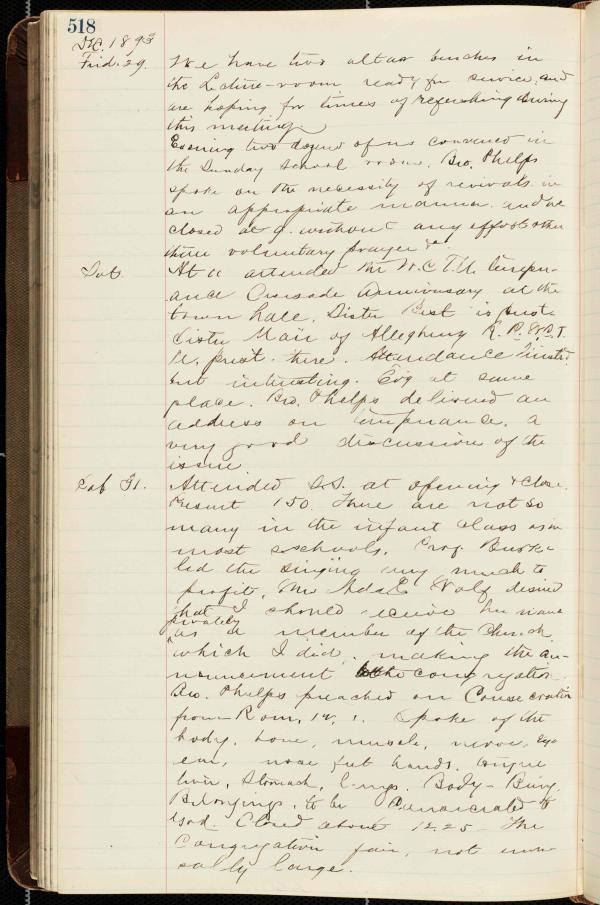 518
Dec. 1893
Frid. 29. We have two altar benches in
the Lecture-room ready for service, and
are hoping for times of refreshing during
this meeting.
Evening two dozend of us convened in
the Sunday School room. Bro. Phelps
spoke on the necessity of revivals in
an appropriate manner and we
closed at 9. without any effort other
than voluntary prayer &c.
Sat. At 2 attended the W.C.T.U. Temper-
ance Crusade Anniversary at the
town hall. Sister Best is Prest.
Sister Mair of Allegheny
U. prest. there. Attendance limited
but interesting. Evg at same
place. Bro. Phelps delivered an
address on temperance. a
very good discussion of the
issue.
Sab 31. Attended S.S. at opening & close.
Present 150. There are not so
many in the infant class as in
most s schools. Prof. Burke
led the singing very much to
profit. Mrs Ada E. Wolf desired
that I should receive her name
privately
as a member of the Church,
which I did, making the an-
nouncement to the congregation.
Bro. Phelps preached on Consecration
from Rom. 12, 1. Spoke of the
body, bone, muscle, nerve, eye
ear, nose feet hands, tongue
liver, Stomach, lungs. Body - Being
Belongings, to be Consecrated to
God. Closed about 12.25 - The
Congregation fair, not unu-
sally large.